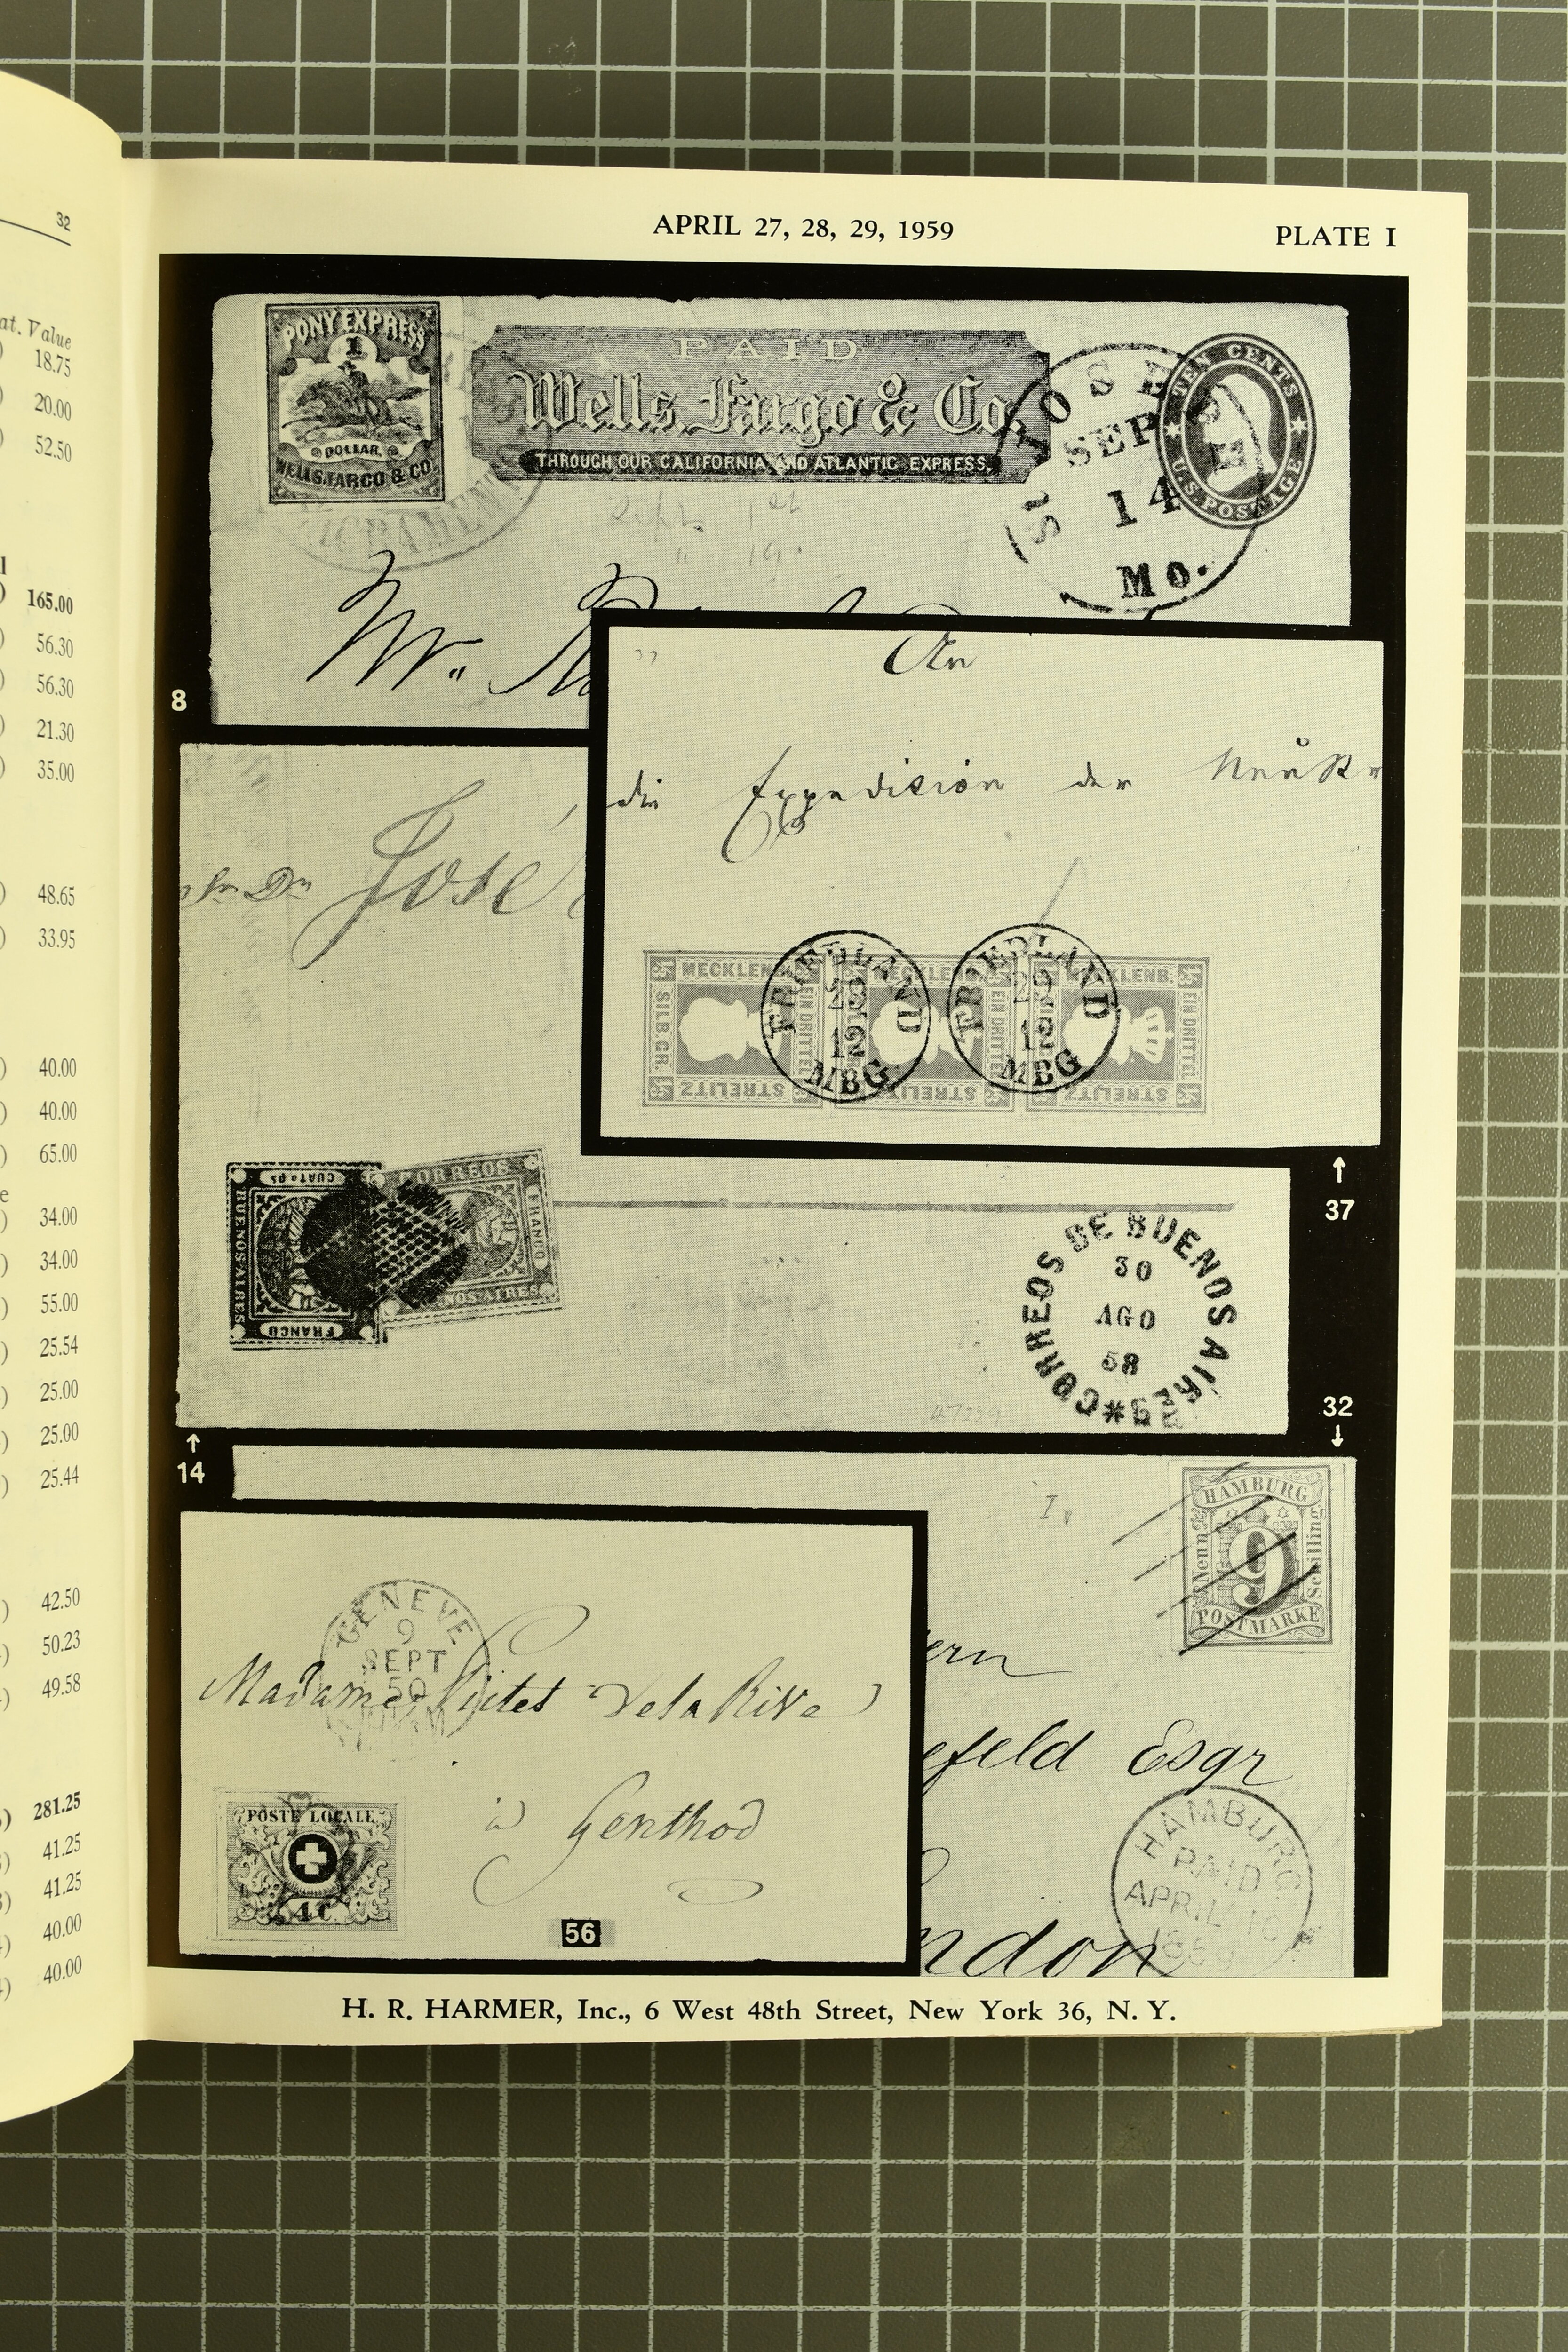 32
at. Value
18.75
20.00
52.50
165.00
56.30
56.30
21.30
35.00
48.65
33.95
40.00
40.00
65.00
34.00
34.00
55.00
25.54
25.00
25.00
25.44
42.50
50.23
49.58
281.25
41.25
41.25
40.00
40.00
APRIL 27, 28, 29, 1959
PLATE I
PONY EXPRESS
1
DOLLAR.
WELLS, FARGO & CO.
PAID
Wells, Fargo & Co.
THROUGH OUR CALIFORNIA AND ATLANTIC EXPRESS.
ST JOSEPH
SEP
14
Mo.
TEN CENTS
U.S. POSTAGE
SACRAMEN
Sept. 1st
" 19
Mr.
8
An
die Expedition der
MECKLENB.
SILB. GR.
EIN DRITTEL
STRELITZ
MECKLENB.
EIN DRITTEL
STRELITZ
MECKLENB.
EIN DRITTEL
STRELITZ
FRIEDLAND
29
12
MBG
FRIEDLAND
29
12
MBG
37
Sr Dn José
CUATo Ps
BUENOS AIRES
FRANCO
CORREOS
FRANCO
NOS AIRES
CORREOS DE BUENOS AIRES
30
AGO
58
47229
14
32
HAMBURG
Neun
9
Schilling
POSTMARKE
ern
efeld Esqr
ndon
HAMBURG
PAID
APRIL 16
1859
GENEVE
9
SEPT
50
Madame Pictet Dela Rive
à Genthod
POSTE LOCALE
4 C
56
H. R. HARMER, Inc., 6 West 48th Street, New York 36, N. Y.